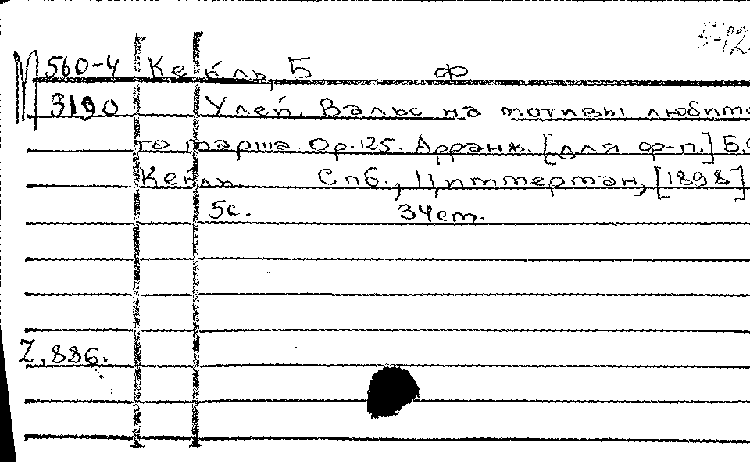 М 560-4 Кекль, Б Ф
3190 Улей. Вальс на мотивы любимо
го марша. Ор. 125. Арранж. [для ф-п.] Б.
Кекль. Спб., Циммерман, [1898]
5с. 34cm.
Z, 886.